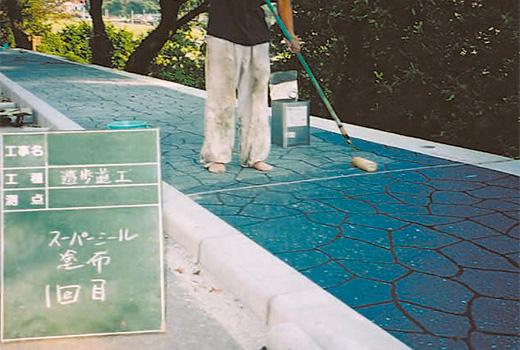 工事名
工種 遊歩道工
測点
スーパーシール
塗布
1回目